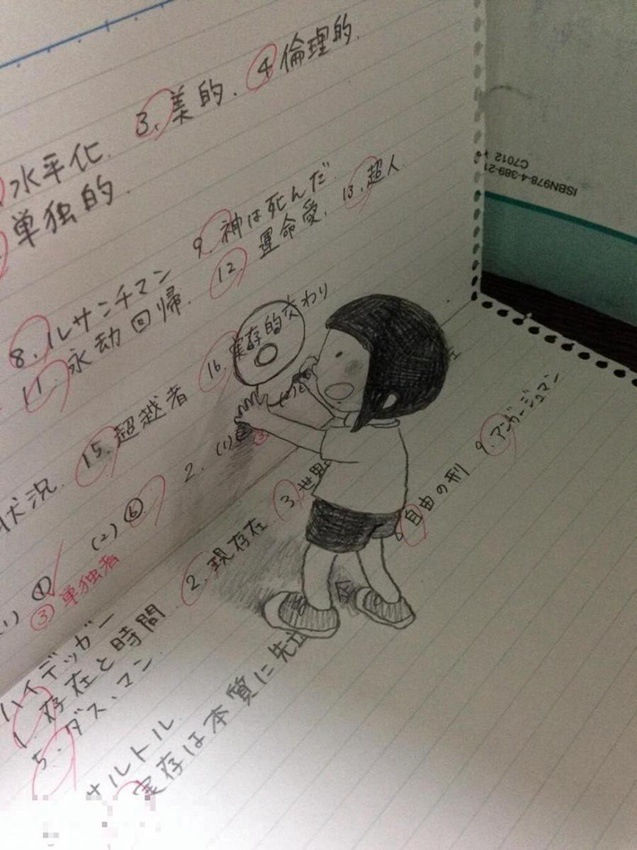 水平化. 3. 美的. 4 倫理的.
単独的.
8. ルサンチマン 9. 神は死んだ
11. 永劫回帰. 12 運命愛. 13. 超人
状況. 15. 超越者 16. 実存的交わり
(1) ④ (2) ⑥ 2. (1)
③ 単独者
ハイデッガー
1. 存在と時間 2. 現存在 3. 世界
5. ダス・マン
サルトル
実存は本質に先立 8 自由の刑 9. アンガージュマン
ISBN978-4-389-21
C7012